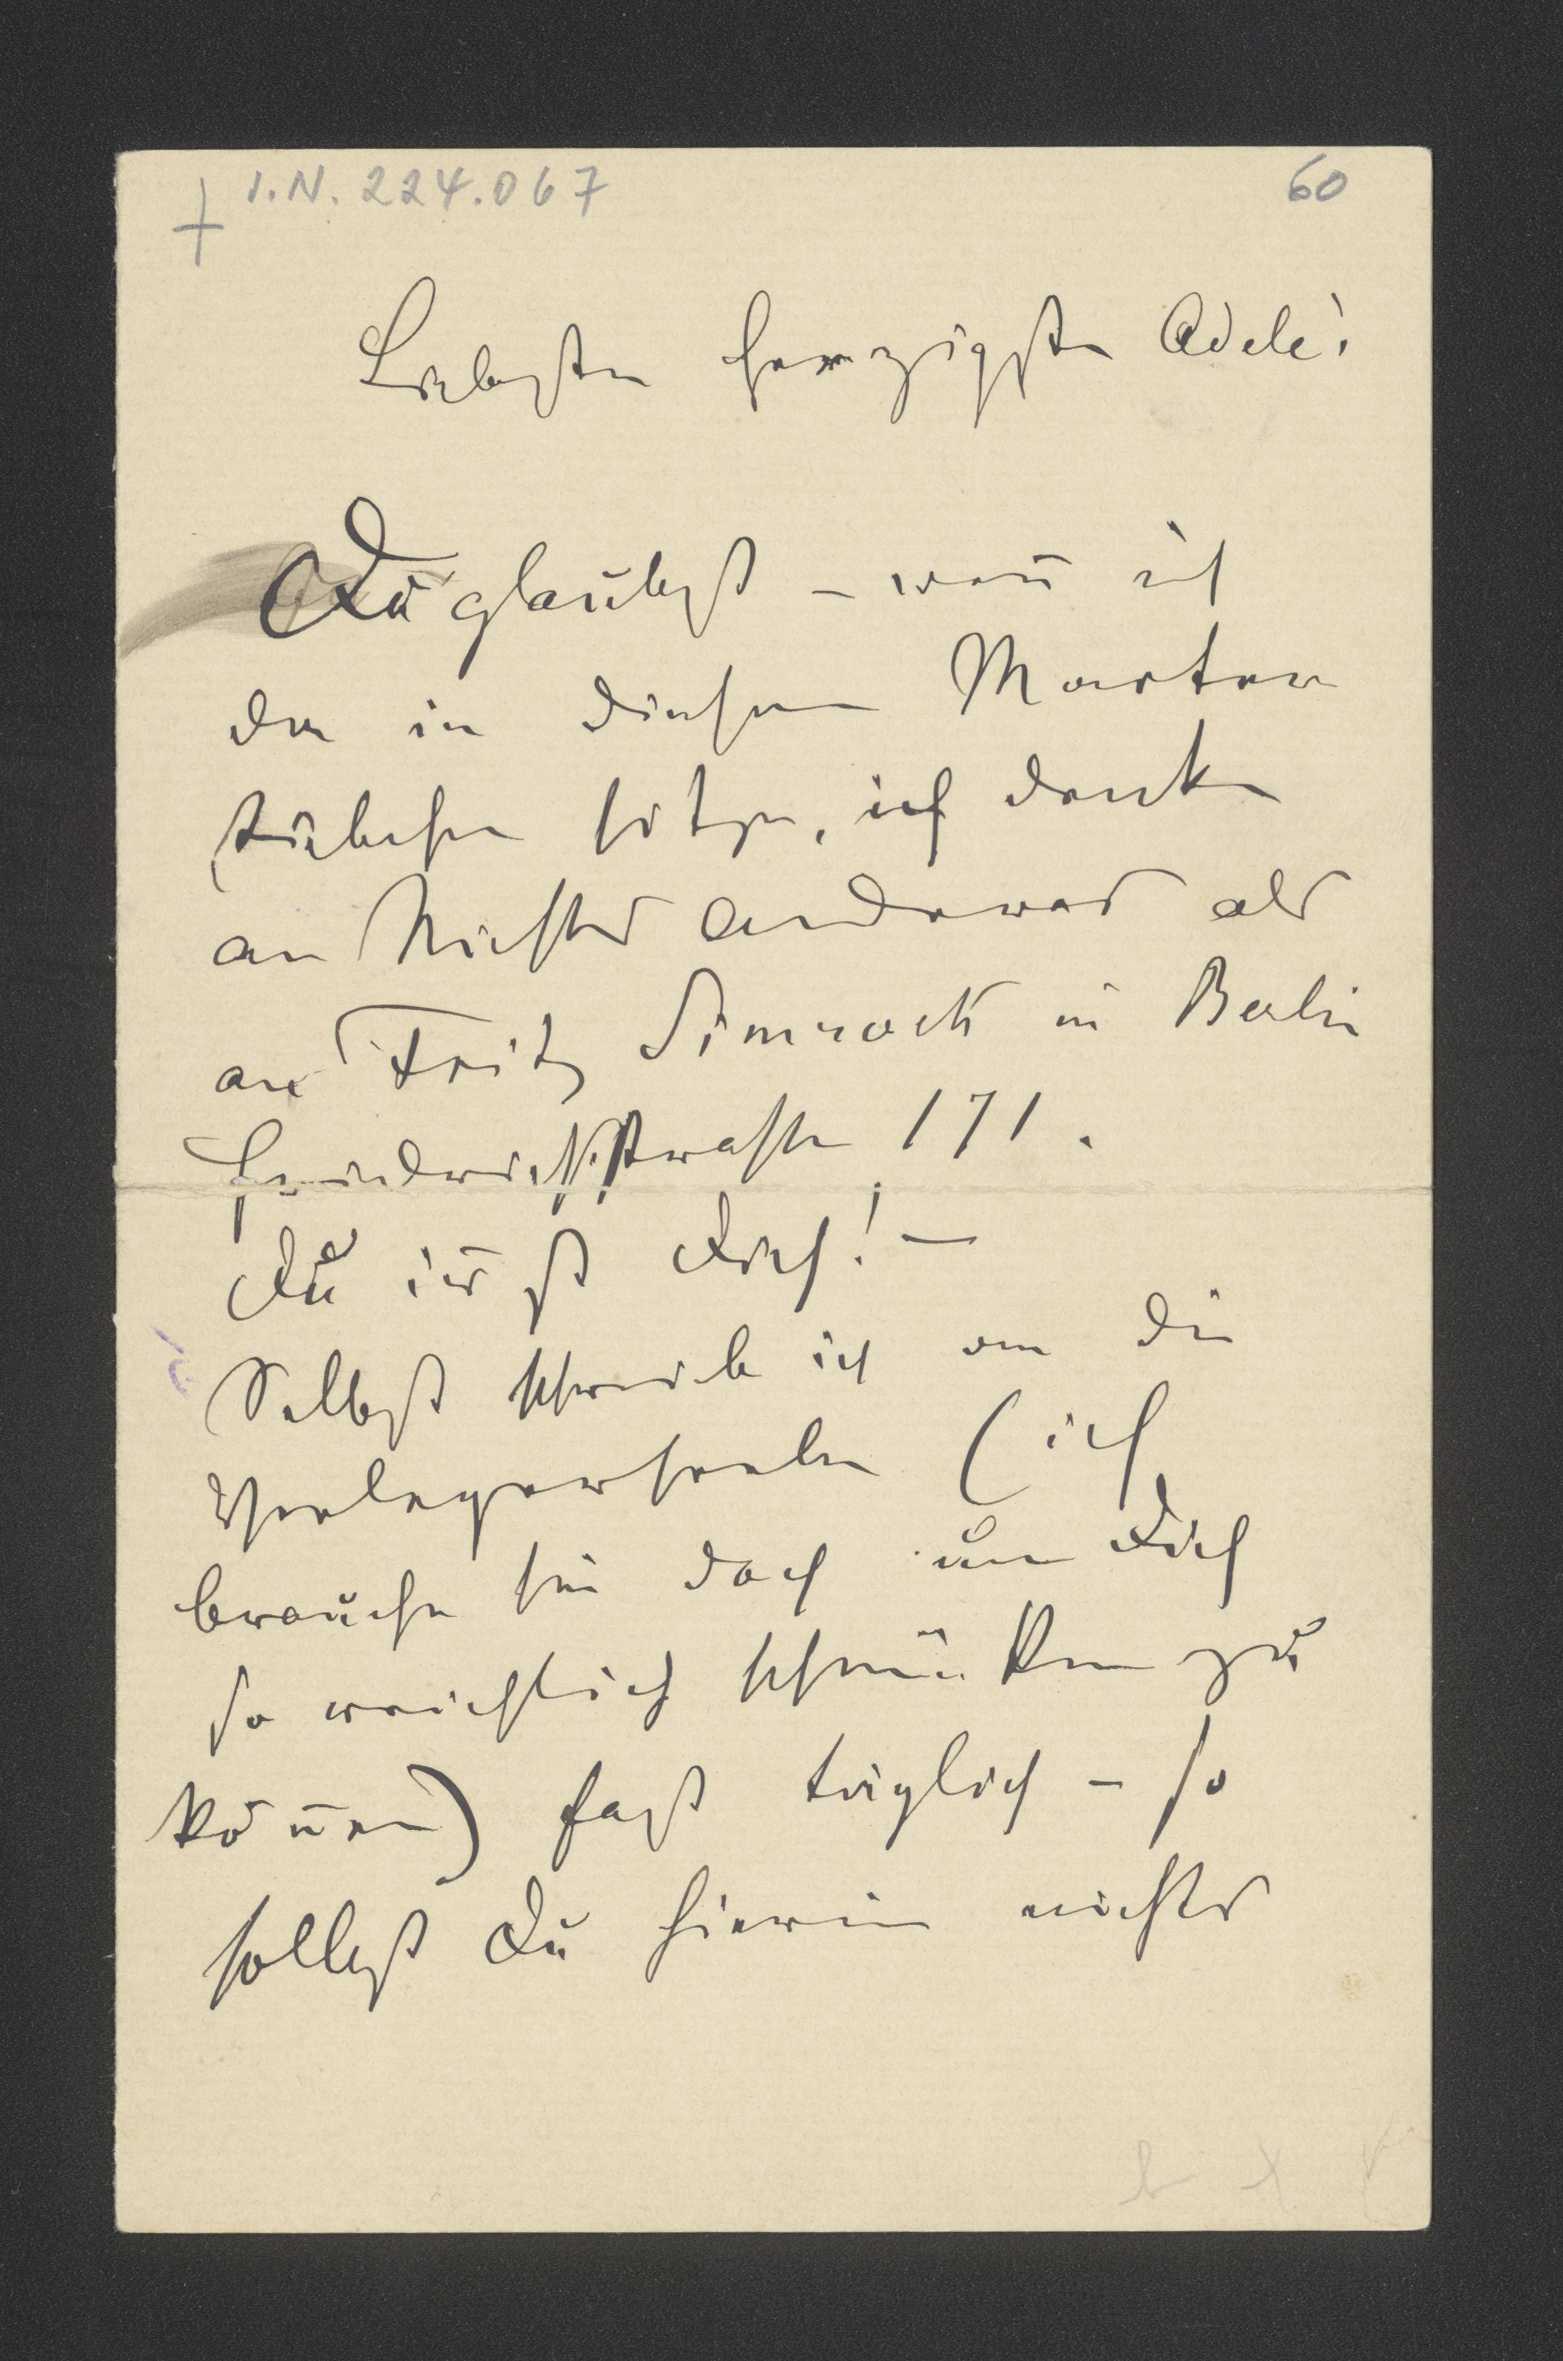 I.N. 224.067
60
Liebste herzigste Adele!
Du glaubst – wen̄ ich
da in diesem Marter
stübchen sitze, ich denke
an Nichts Anderes als
an Fritz Simrock in Berlin
Friedrichstrasse 171.
Du irrst Dich! –
Selbst schreibe ich an die
Verlegerseele (ich
brauche sie doch um Dich
so reichlich schmücken zu
kön̄en) fast täglich – so
sollst Du hierin nichts